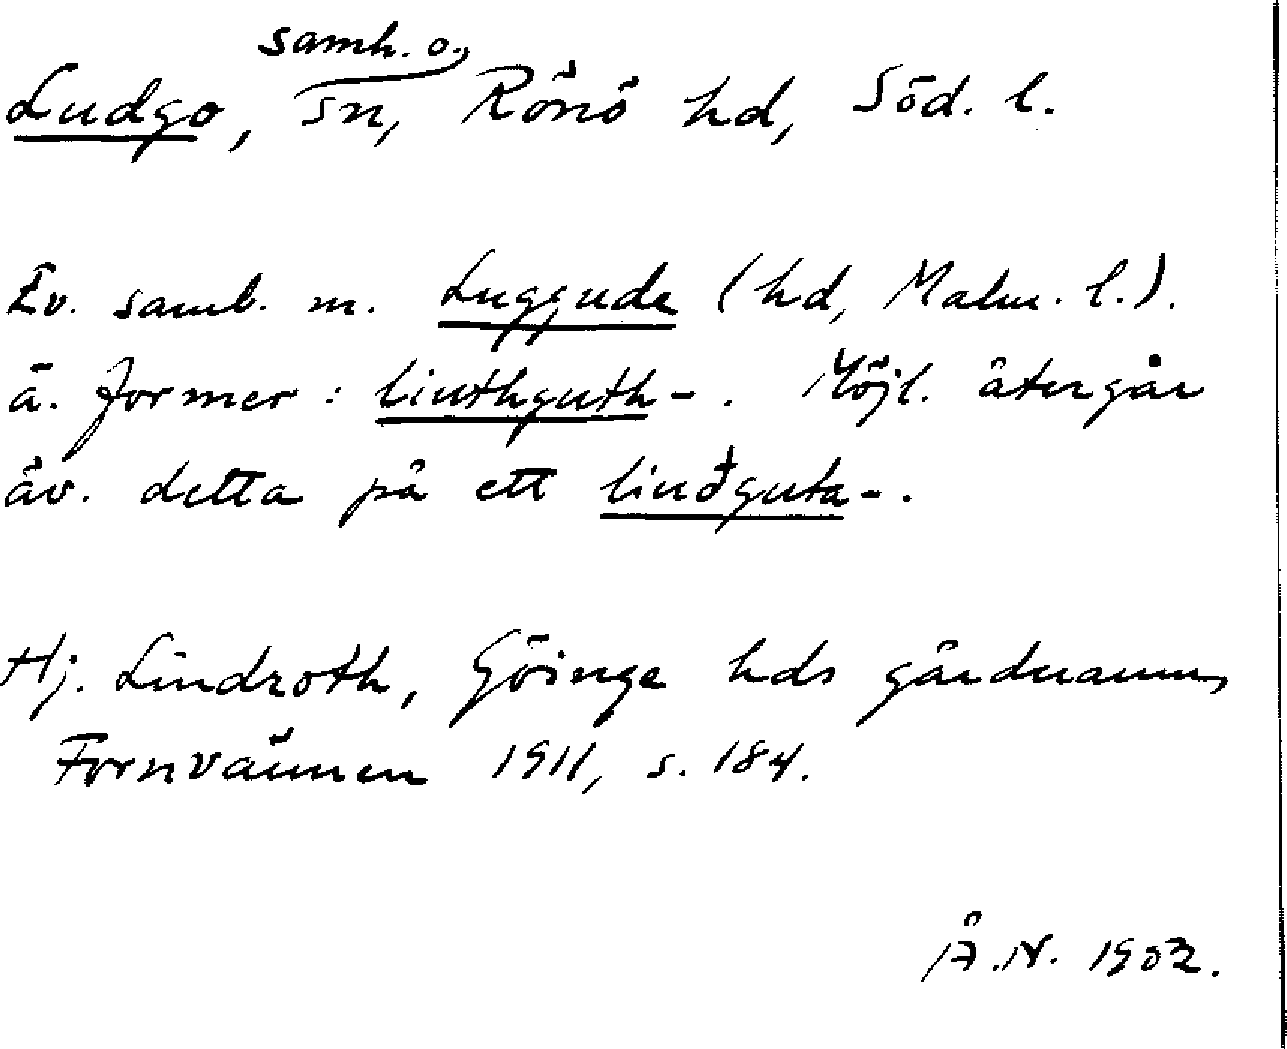 samh. o.
Ludgo, sn, Rönö hd, Söd. l.
Ev. samb. m. Luggude (hd, Malm. l.).
ä. former: liuthguth-. Möjl. återgår
äv. detta på ett liuđguta-.
Hj. Lindroth, Göinge hds gårdnamn,
Fornvännen 1911, s. 184.
Å.N.